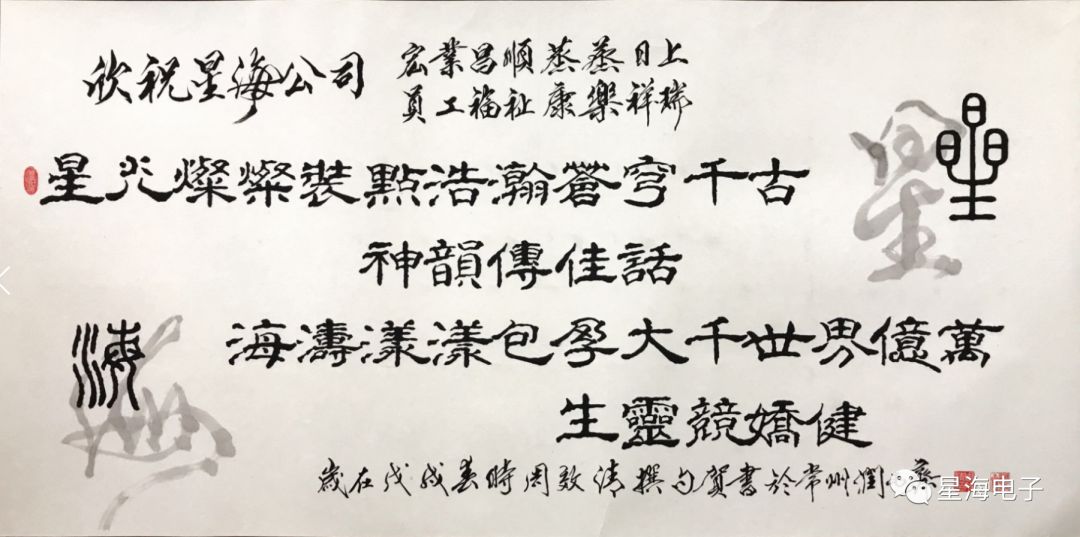 欣祝星海公司
宏業昌順蒸蒸日上
員工福祉康樂祥瑞
星光燦燦裝點浩瀚蒼穹千古
神韻傳佳話
海濤漾漾包孕大千世界億萬
生靈競嬌健
歲在戊戌春時周效清撰句賀書於常州潤
星
星
海
海
星海电子